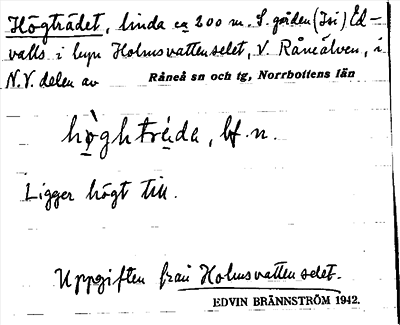 Högträdet, linda ca 200 m. S. gården (Isi) Ed-
valls i byn Holmsvattenselet, V. Råneälven, i
N.V. delen av Råneå sn och tg, Norrbottens län
hö̀ghträda, bf. n.
Ligger högt till.
Uppgiften från Holmsvattenselet.
EDVIN BRÄNNSTRÖM 1942.